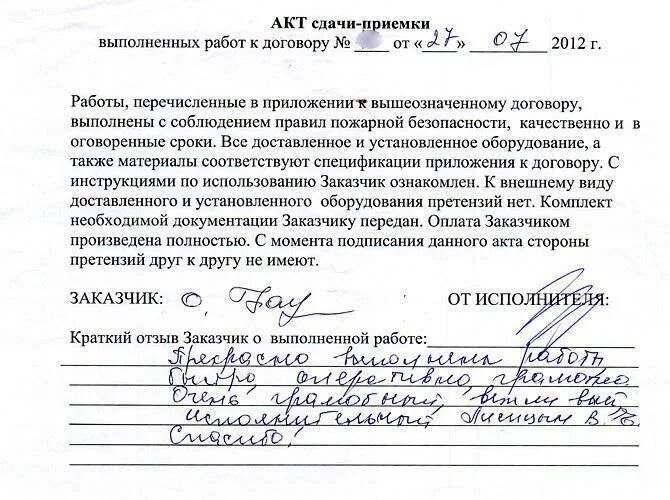 АКТ сдачи-приемки
выполненных работ к договору № от «27» 07 2012 г.
Работы, перечисленные в приложении к вышеозначенному договору,
выполнены с соблюдением правил пожарной безопасности, качественно и в
оговоренные сроки. Все доставленное и установленное оборудование, а
также материалы соответствуют спецификации приложения к договору. С
инструкциями по использованию Заказчик ознакомлен. К внешнему виду
доставленного и установленного оборудования претензий нет. Комплект
необходимой документации Заказчику передан. Оплата Заказчиком
произведена полностью. С момента подписания данного акта стороны
претензий друг к другу не имеют.
ЗАКАЗЧИК: О. ОТ ИСПОЛНИТЕЛЯ:
Краткий отзыв Заказчик о выполненной работе:
Прекрасно выполнены работы
быстро, оперативно грамотно.
Очень грамотный,
исполнительный Лисицын В.
Спасибо!